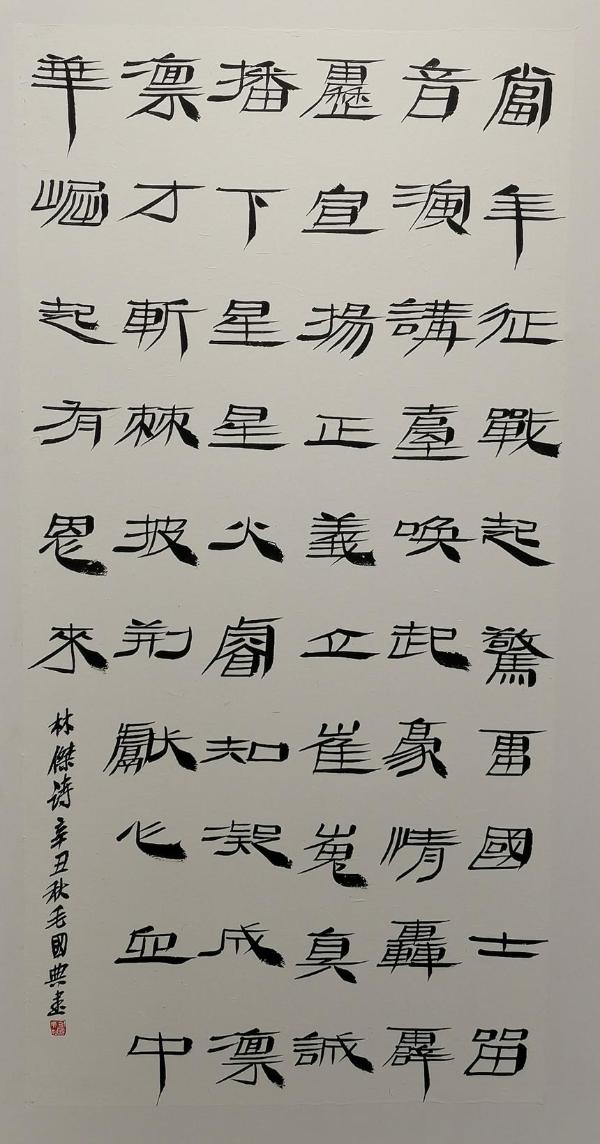 當年征戰起驚雷國士留
音演講臺喚起豪情轟霹
靂宣揚正義立崔嵬真誠
播下星星火睿知凝成凜
凜才斬棘披荊獻心血中
華崛起有恩來
林傑诗辛丑秋毛國典書